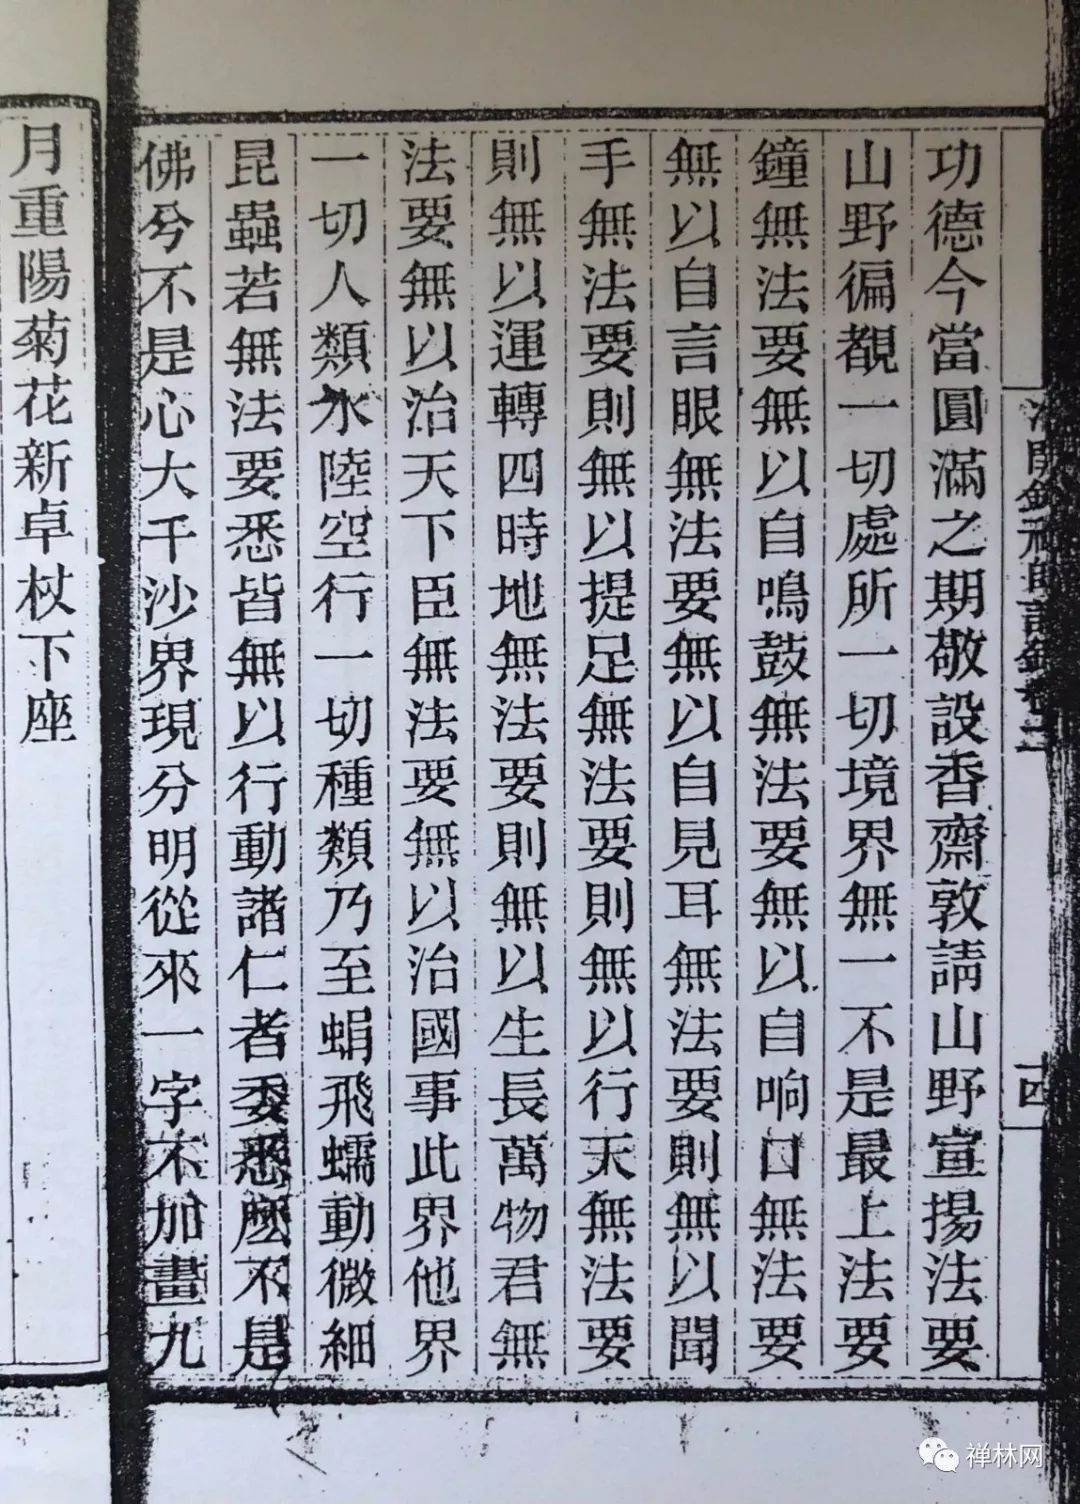 功德今當圓滿之期敬設香齋敦請山野宣揚法要
山野徧覩一切處所一切境界無一不是最上法要
鐘無法要無以自鳴鼓無法要無以自响口無法要
無以自言眼無法要無以自見耳無法要則無以聞
手無法要則無以提足無法要則無以行天無法要
則無以運轉四時地無法要則無以生長萬物君無
法要無以治天下臣無法要無以治國事此界他界
一切人類水陸空行一切種類乃至蜎飛蠕動微細
昆蟲若無法要悉皆無以行動諸仁者委悉麽不是
佛兮不是心大千沙界現分明從來一字不加畫九
月重陽菊花新卓杖下座
四
禅林网